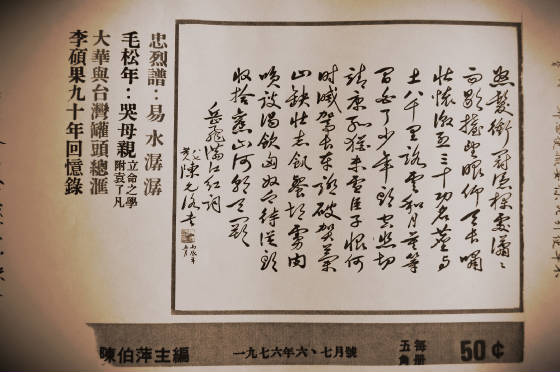 怒髮衝冠憑欄處瀟〻
雨歇擡望眼仰天長嘯
壯懷激烈三十功名塵與
土八千里路雲和月莫等
閒白了少年頭空悲切
靖康恥猶未雪臣子恨何
時滅駕長車踏破賀蘭
山缺壯志飢餐胡虜肉
笑談渴飲匈奴血待從頭
收拾舊山河朝天闕
岳飛滿江紅詞
丙辰年
忠烈譜：易水潺潺
毛松年：哭母親
立命之學
附袁了凡
大華與台灣罐頭總滙
李碩果九十年回憶錄
陳伯萍主編
一九七六年六、七月號
每册
五角
50¢